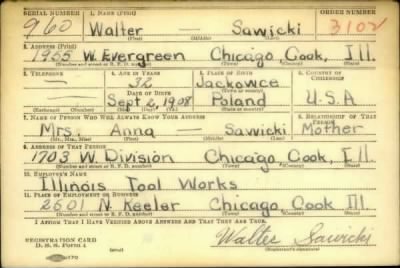 SERIAL NUMBER 1. NAME (Print) ORDER NUMBER
960 Walter Sawicki 3102
(First) (Middle) (Last)
2. ADDRESS (Print)
1955 W. Evergreen Chicago Cook, Ill.
(Number and street or R. F. D. number) (Town) (County) (State)
3. TELEPHONE 4. AGE IN YEARS 5. PLACE OF BIRTH 6. COUNTRY OF CITIZENSHIP
32 Jackowce
DATE OF BIRTH (Town or county)
Sept 2, 1908 Poland U.S.A
(Exchange) (Number) (Mo.) (Day) (Yr.) (State or country)
7. NAME OF PERSON WHO WILL ALWAYS KNOW YOUR ADDRESS 8. RELATIONSHIP OF THAT PERSON
Mrs. Anna Sawicki Mother
(Mr., Mrs., Miss) (First) (Middle) (Last)
9. ADDRESS OF THAT PERSON
1703 W. Division Chicago, Cook, Ill.
(Number and street or R. F. D. number) (Town) (County) (State)
10. EMPLOYER'S NAME
Illinois Tool Works
11. PLACE OF EMPLOYMENT OR BUSINESS
2501 N. Keeler Chicago, Cook Ill.
(Number and street or R. F. D. number) (Town) (County) (State)
I AFFIRM THAT I HAVE VERIFIED ABOVE ANSWERS AND THAT THEY ARE TRUE.
REGISTRATION CARD
D. S. S. FORM 1 (over) Walter Sawicki
(Registrant's signature)